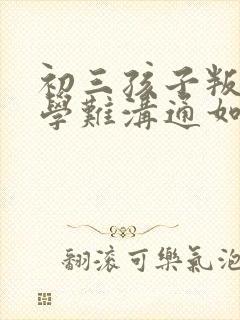 初三孩子叛
學難溝通如
翻滾可樂氣泡